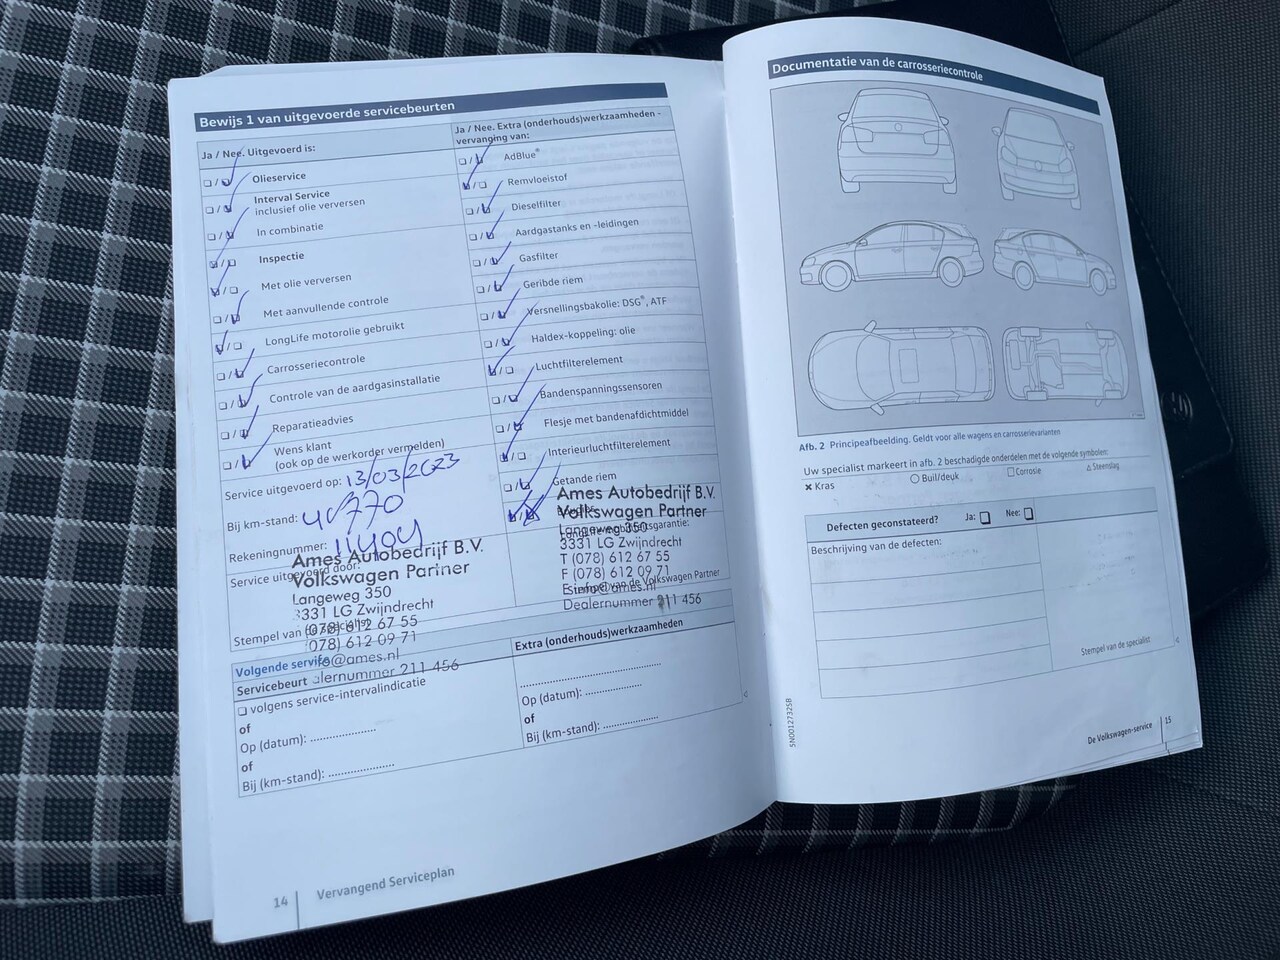 Bewijs 1 van uitgevoerde servicebeurten
Ja / Nee. Uitgevoerd is:
Olieservice
Interval Service
inclusief olie verversen
In combinatie
Inspectie
Met olie verversen
Met aanvullende controle
LongLife motorolie gebruikt
Carrosseriecontrole
Controle van de aardgasinstallatie
Reparatieadvies
Wens klant
(ook op de werkorder vermelden)
Service uitgevoerd op: 13/03/2023
Bij km-stand:
Rekeningnummer: 11404
Service uitgevoerd door:
Ames Autobedrijf B.V.
Volkswagen Partner
Langeweg 350
3331 LG Zwijndrecht
(078) 612 67 55
(078) 612 09 71
@ames.nl
Dealernummer 211 456
Stempel van
Ja / Nee. Extra (onderhouds)werkzaamheden -
vervanging van:
AdBlue®
Remvloeistof
Dieselfilter
Aardgastanks en -leidingen
Gasfilter
Geribde riem
Versnellingsbakolie: DSG®, ATF
Haldex-koppeling: olie
Luchtfilterelement
Bandenspanningssensoren
Flesje met bandenafdichtmiddel
Interieurluchtfilterelement
Getande riem
Ames Autobedrijf B.V.
Volkswagen Partner
Langeweg 350
3331 LG Zwijndrecht
T (078) 612 67 55
F (078) 612 09 71
de Volkswagen Partner
Dealernummer 211 456
Volgende service
Servicebeurt
volgens service-intervalindicatie
of
Op (datum): ....................
of
Bij (km-stand): ....................
Extra (onderhouds)werkzaamheden
Op (datum): .................
of
Bij (km-stand): .................
14 Vervangend Serviceplan
Documentatie van de carrosseriecontrole
Afb. 2 Principeafbeelding. Geldt voor alle wagens en carrosserievarianten
Uw specialist markeert in afb. 2 beschadigde onderdelen met de volgende symbolen:
× Kras
○ Buil/deuk
□ Corrosie
△ Steenslag
Defecten geconstateerd? Ja: Nee:
Beschrijving van de defecten:
Stempel van de specialist
5N0012732SB
De Volkswagen-service 15